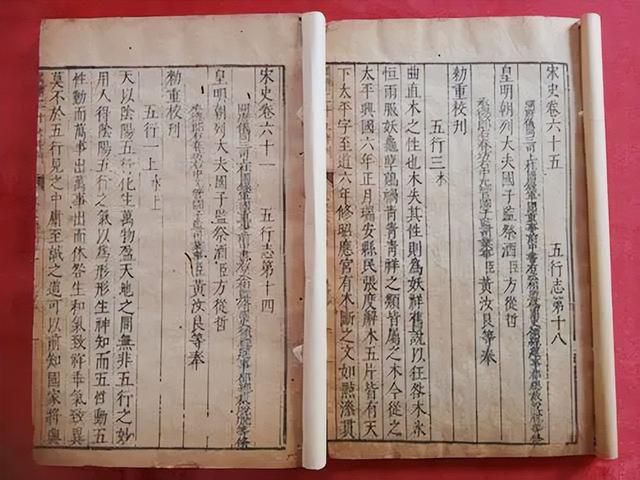 宋史卷六十五 五行志第十八
皇明朝列大夫國子監祭酒臣方從哲
臣黃汝良等奉
勑重校刊
五行三木
曲直木之性也木失其性則為妖祥舊說以狂咎木氷
恒雨服妖龜孽雞禍青眚青祥之類皆屬之木今從之
太平興國六年正月瑞安縣民張度解木五片皆有天
下太平字至道六年修昭應宮有木斷之文如點漆貫
宋史卷六十一 五行志第十四
皇明朝列大夫國子監祭酒臣方從哲
臣黃汝良等奉
勑重校刊
五行一上水上
天以陰陽五行化生萬物盈天地之間無非五行之妙
用人得陰陽五行之氣以為形形生神知而五性動五
性動而萬事出萬事出而休咎生和氣致祥乖氣致異
莫不於五行見之中庸至誠之道可以前知國家將興